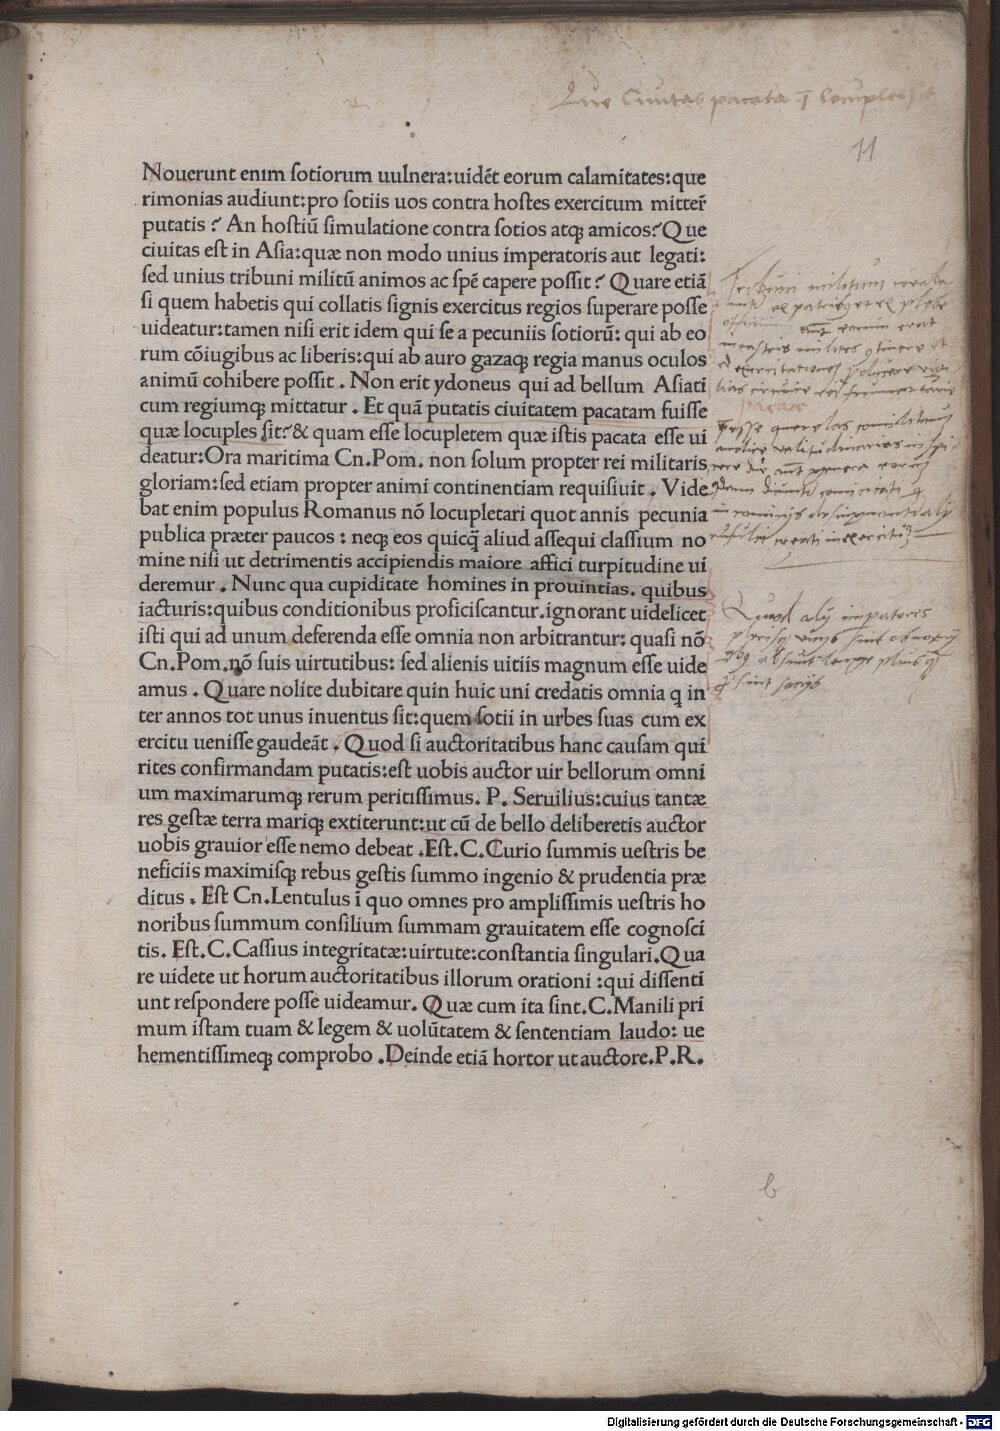 Que Ciuitas pacata
11
Nouerunt enim ſotiorum uulnera:uidēt eorum calamitates:que
rimonias audiunt:pro ſotiis uos contra hoſtes exercitum mitter̄
putatis? An hoſtiū ſimulatione contra ſotios atqꝫ amicos?Que
ciuitas eſt in Aſia:quæ non modo unius imperatoris aut legati:
ſed unius tribuni militū animos ac ſpē capere poſſit? Quare etiā
ſi quem habetis qui collatis ſignis exercitus regios ſuperare poſſe
uideatur:tamen niſi erit idem qui ſe a pecuniis ſotiorū: qui ab eo
rum cōiugibus ac liberis:qui ab auro gazaqꝫ regia manus oculos
animū cohibere poſſit . Non erit ydoneus qui ad bellum Aſiati
cum regiumqꝫ mittatur . Et quā putatis ciuitatem pacatam fuiſſe
quæ locuples ſit?& quam eſſe locupletem quæ iſtis pacata eſſe ui
deatur:Ora maritima Cn.Pom. non ſolum propter rei militaris
gloriam:ſed etiam propter animi continentiam requiſiuit . Vide
bat enim populus Romanus nō locupletari quot annis pecunia
publica præter paucos : neqꝫ eos quicq̄ aliud aſſequi claſſium no
mine niſi ut detrimentis accipiendis maiore affici turpitudine ui
deremur . Nunc qua cupiditate homines in prouintias. quibus
iacturis:quibus conditionibus proficiſcantur.ignorant uidelicet
iſti qui ad unum deferenda eſſe omnia non arbitrantur: quaſi nō
Cn.Pom.nō ſuis uirtutibus: ſed alienis uitiis magnum eſſe uide
amus . Quare nolite dubitare quin huic uni credatis omnia q in
ter annos tot unus inuentus ſit:quem ſotii in urbes ſuas cum ex
ercitu ueniſſe gaudeāt . Quod ſi auctoritatibus hanc cauſam qui
rites confirmandam putatis:eſt uobis auctor uir bellorum omni
um maximarumqꝫ rerum peritiſſimus. P. Seruilius:cuius tantæ
res geſtæ terra mariqꝫ extiterunt:ut cū de bello deliberetis auctor
uobis grauior eſſe nemo debeat .Eſt.C.Curio ſummis ueſtris be
neficiis maximiſqꝫ rebus geſtis ſummo ingenio & prudentia præ
ditus . Eſt Cn.Lentulus ī quo omnes pro ampliſſimis ueſtris ho
noribus ſummum conſilium ſummam grauitatem eſſe cognoſci
tis. Eſt.C.Caſſius integritatæ:uirtute:conſtantia ſingulari.Qua
re uidete ut horum auctoritatibus illorum orationi :qui diſſenti
unt reſpondere poſſe uideamur. Quæ cum ita ſint.C.Manili pri
mum iſtam tuam & legem & uolūtatem & ſententiam laudo: ue
hementiſſimeqꝫ comprobo .Deinde etiā hortor ut auctore.P.R.
Tribuni militum
pacare
Quod alij
b
Digitalisierung gefördert durch die Deutsche Forschungsgemeinschaft - DFG